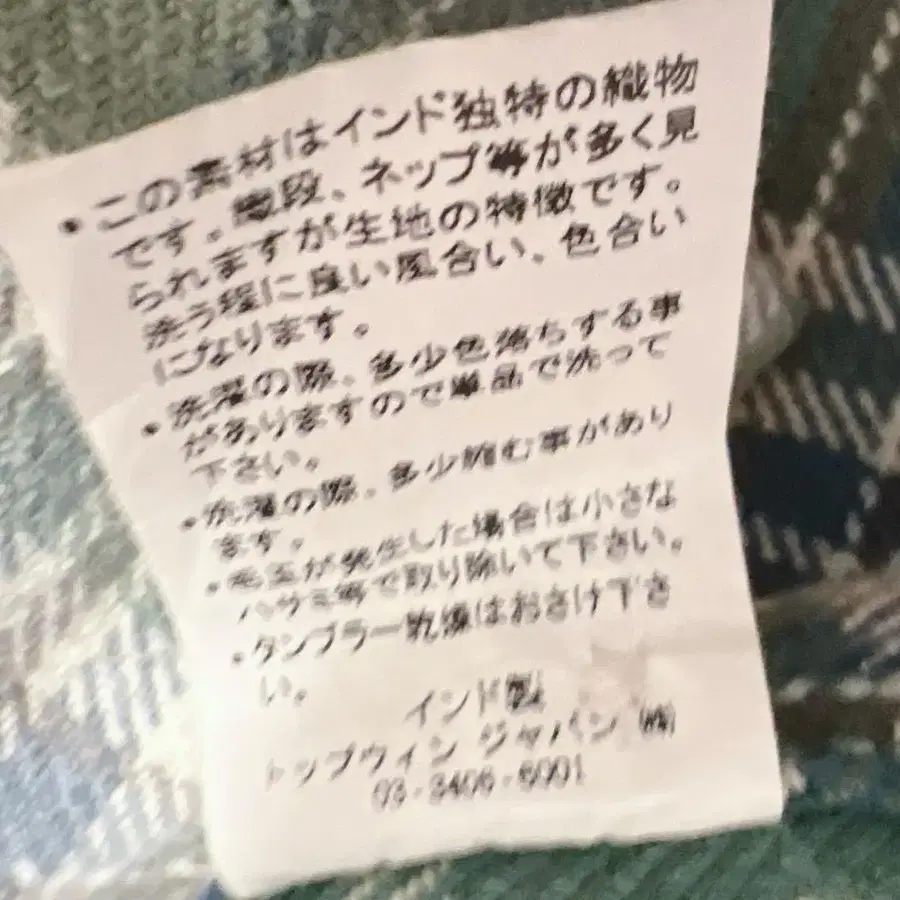 ・この素材はインド独特の織物
です。織段、ネップ等が多く見
られますが生地の特徴です。
洗う程に良い風合い、色合い
になります。
・洗濯の際、多少色落ちする事
がありますので単品で洗って
下さい。
・洗濯の際、多少縮む事があり
ます。
・毛玉が発生した場合は小さな
ハサミ等で取り除いて下さい。
・タンブラー乾燥はおさけ下さ
い。
インド製
トップウィン ジャパン ㈱
03-3406-6001